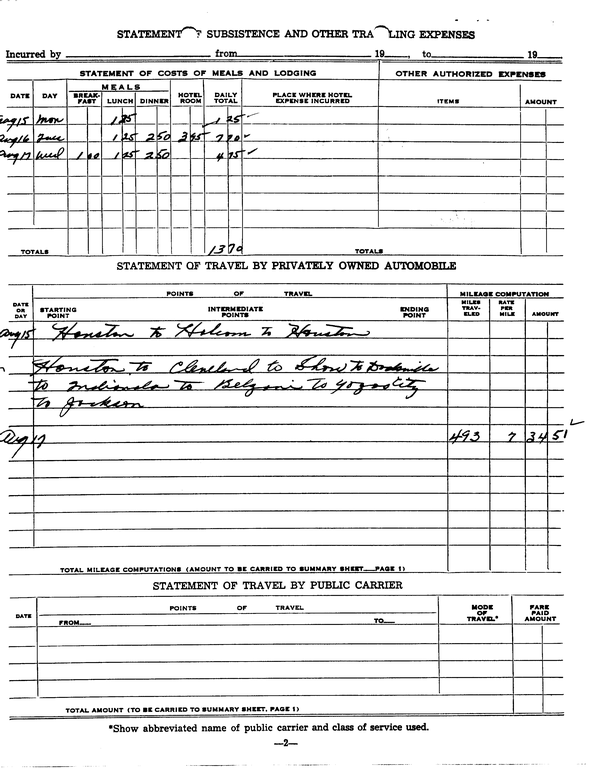 STATEMENT OF SUBSISTENCE AND OTHER TRA LING EXPENSES
Incurred by from 19 , to 19
STATEMENT OF COSTS OF MEALS AND LODGING OTHER AUTHORIZED EXPENSES
DATE DAY MEALS BREAK-FAST LUNCH DINNER HOTEL ROOM DAILY TOTAL PLACE WHERE HOTEL EXPENSE INCURRED ITEMS AMOUNT
Aug 15 Mon 1 25 1 25
Aug 16 Tues 1 25 2 50 3 95 7 70
Aug 17 Wed 1 00 1 25 2 50 4 75
TOTALS 13 70 TOTALS
STATEMENT OF TRAVEL BY PRIVATELY OWNED AUTOMOBILE
DATE OR DAY POINTS OF TRAVEL MILEAGE COMPUTATION
STARTING POINT INTERMEDIATE POINTS ENDING POINT MILES TRAV-ELED RATE PER MILE AMOUNT
Aug 15 Houston to Holcom to Houston
Houston to Cleveland to Shaw to
to Indianola to Belzoni to Yazoo City
to Jackson
Aug 17 493 7 34 51
TOTAL MILEAGE COMPUTATIONS (AMOUNT TO BE CARRIED TO SUMMARY SHEET PAGE 1)
STATEMENT OF TRAVEL BY PUBLIC CARRIER
DATE POINTS OF TRAVEL MODE OF TRAVEL* FARE PAID AMOUNT
FROM TO
TOTAL AMOUNT (TO BE CARRIED TO SUMMARY SHEET, PAGE 1)
*Show abbreviated name of public carrier and class of service used.
—2—